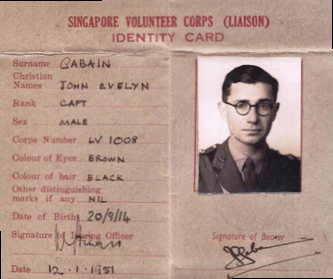 SINGAPORE VOLUNTEER CORPS (LIAISON)
IDENTITY CARD
Surname CABAIN
Christian
Names JOHN EVELYN
Rank CAPT
Sex MALE
Corps Number LV 1008
Colour of Eyes BROWN
Colour of hair BLACK
Other distinguishing
marks if any NIL
Date of Birth 20/9/14
Signature of Issuing Officer
Date 12.1.1951
Signature of Bearer